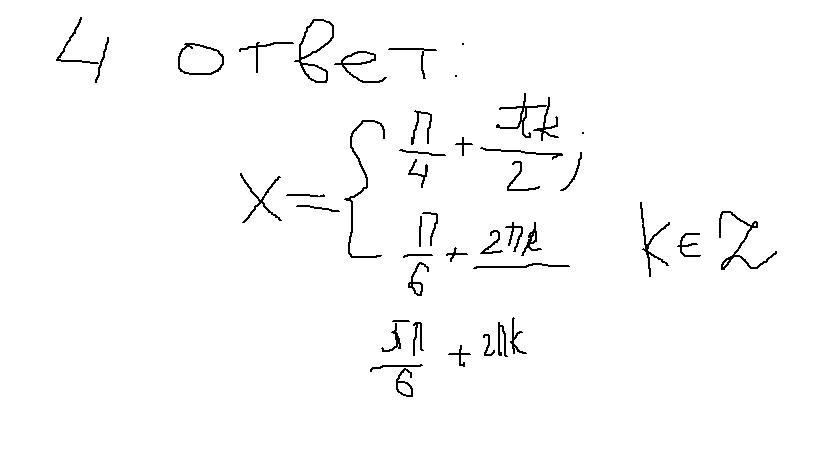 4 ответ:
x = { π/4 + πk/2;
π/6 + 2πk k ∈ Z
5π/6 + 2πk